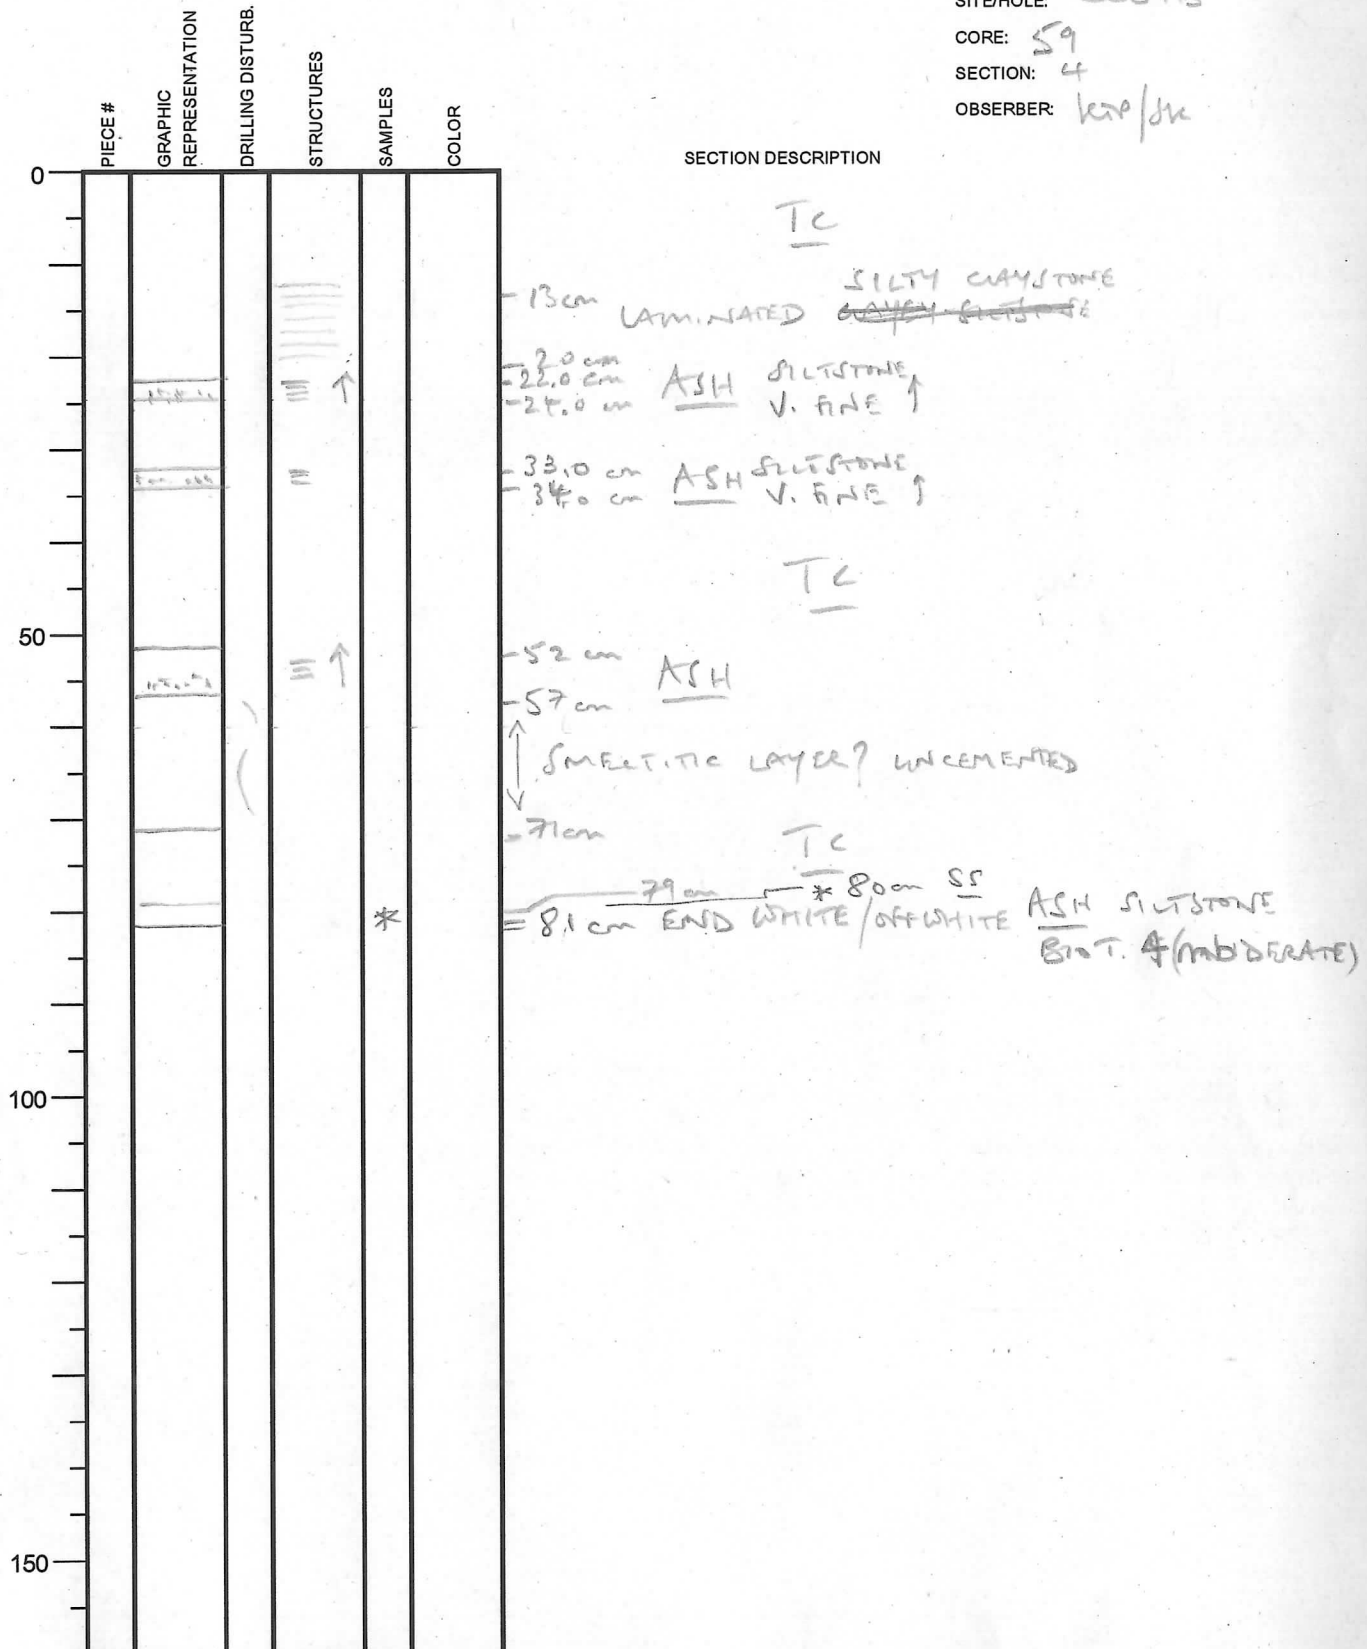 SITE/HOLE:
CORE: 59
SECTION: 4
OBSERBER: KTP/JK
PIECE #
GRAPHIC REPRESENTATION
DRILLING DISTURB.
STRUCTURES
SAMPLES
COLOR
SECTION DESCRIPTION
0
TC
SILTY CLAYSTONE
13cm LAMINATED CLAYEY SILTSTONE
20 cm
22.0 cm ASH SILTSTONE
24.0 cm V. FINE ↑
33.0 cm ASH SILTSTONE
34.0 cm V. FINE ↑
TC
50
52 cm ASH
57 cm
SMECTITIC LAYER? UNCEMENTED
71cm
TC
79 cm * 80cm SS
* 81 cm END WHITE/OFFWHITE ASH SILTSTONE
BIOT. (MODERATE)
100
150